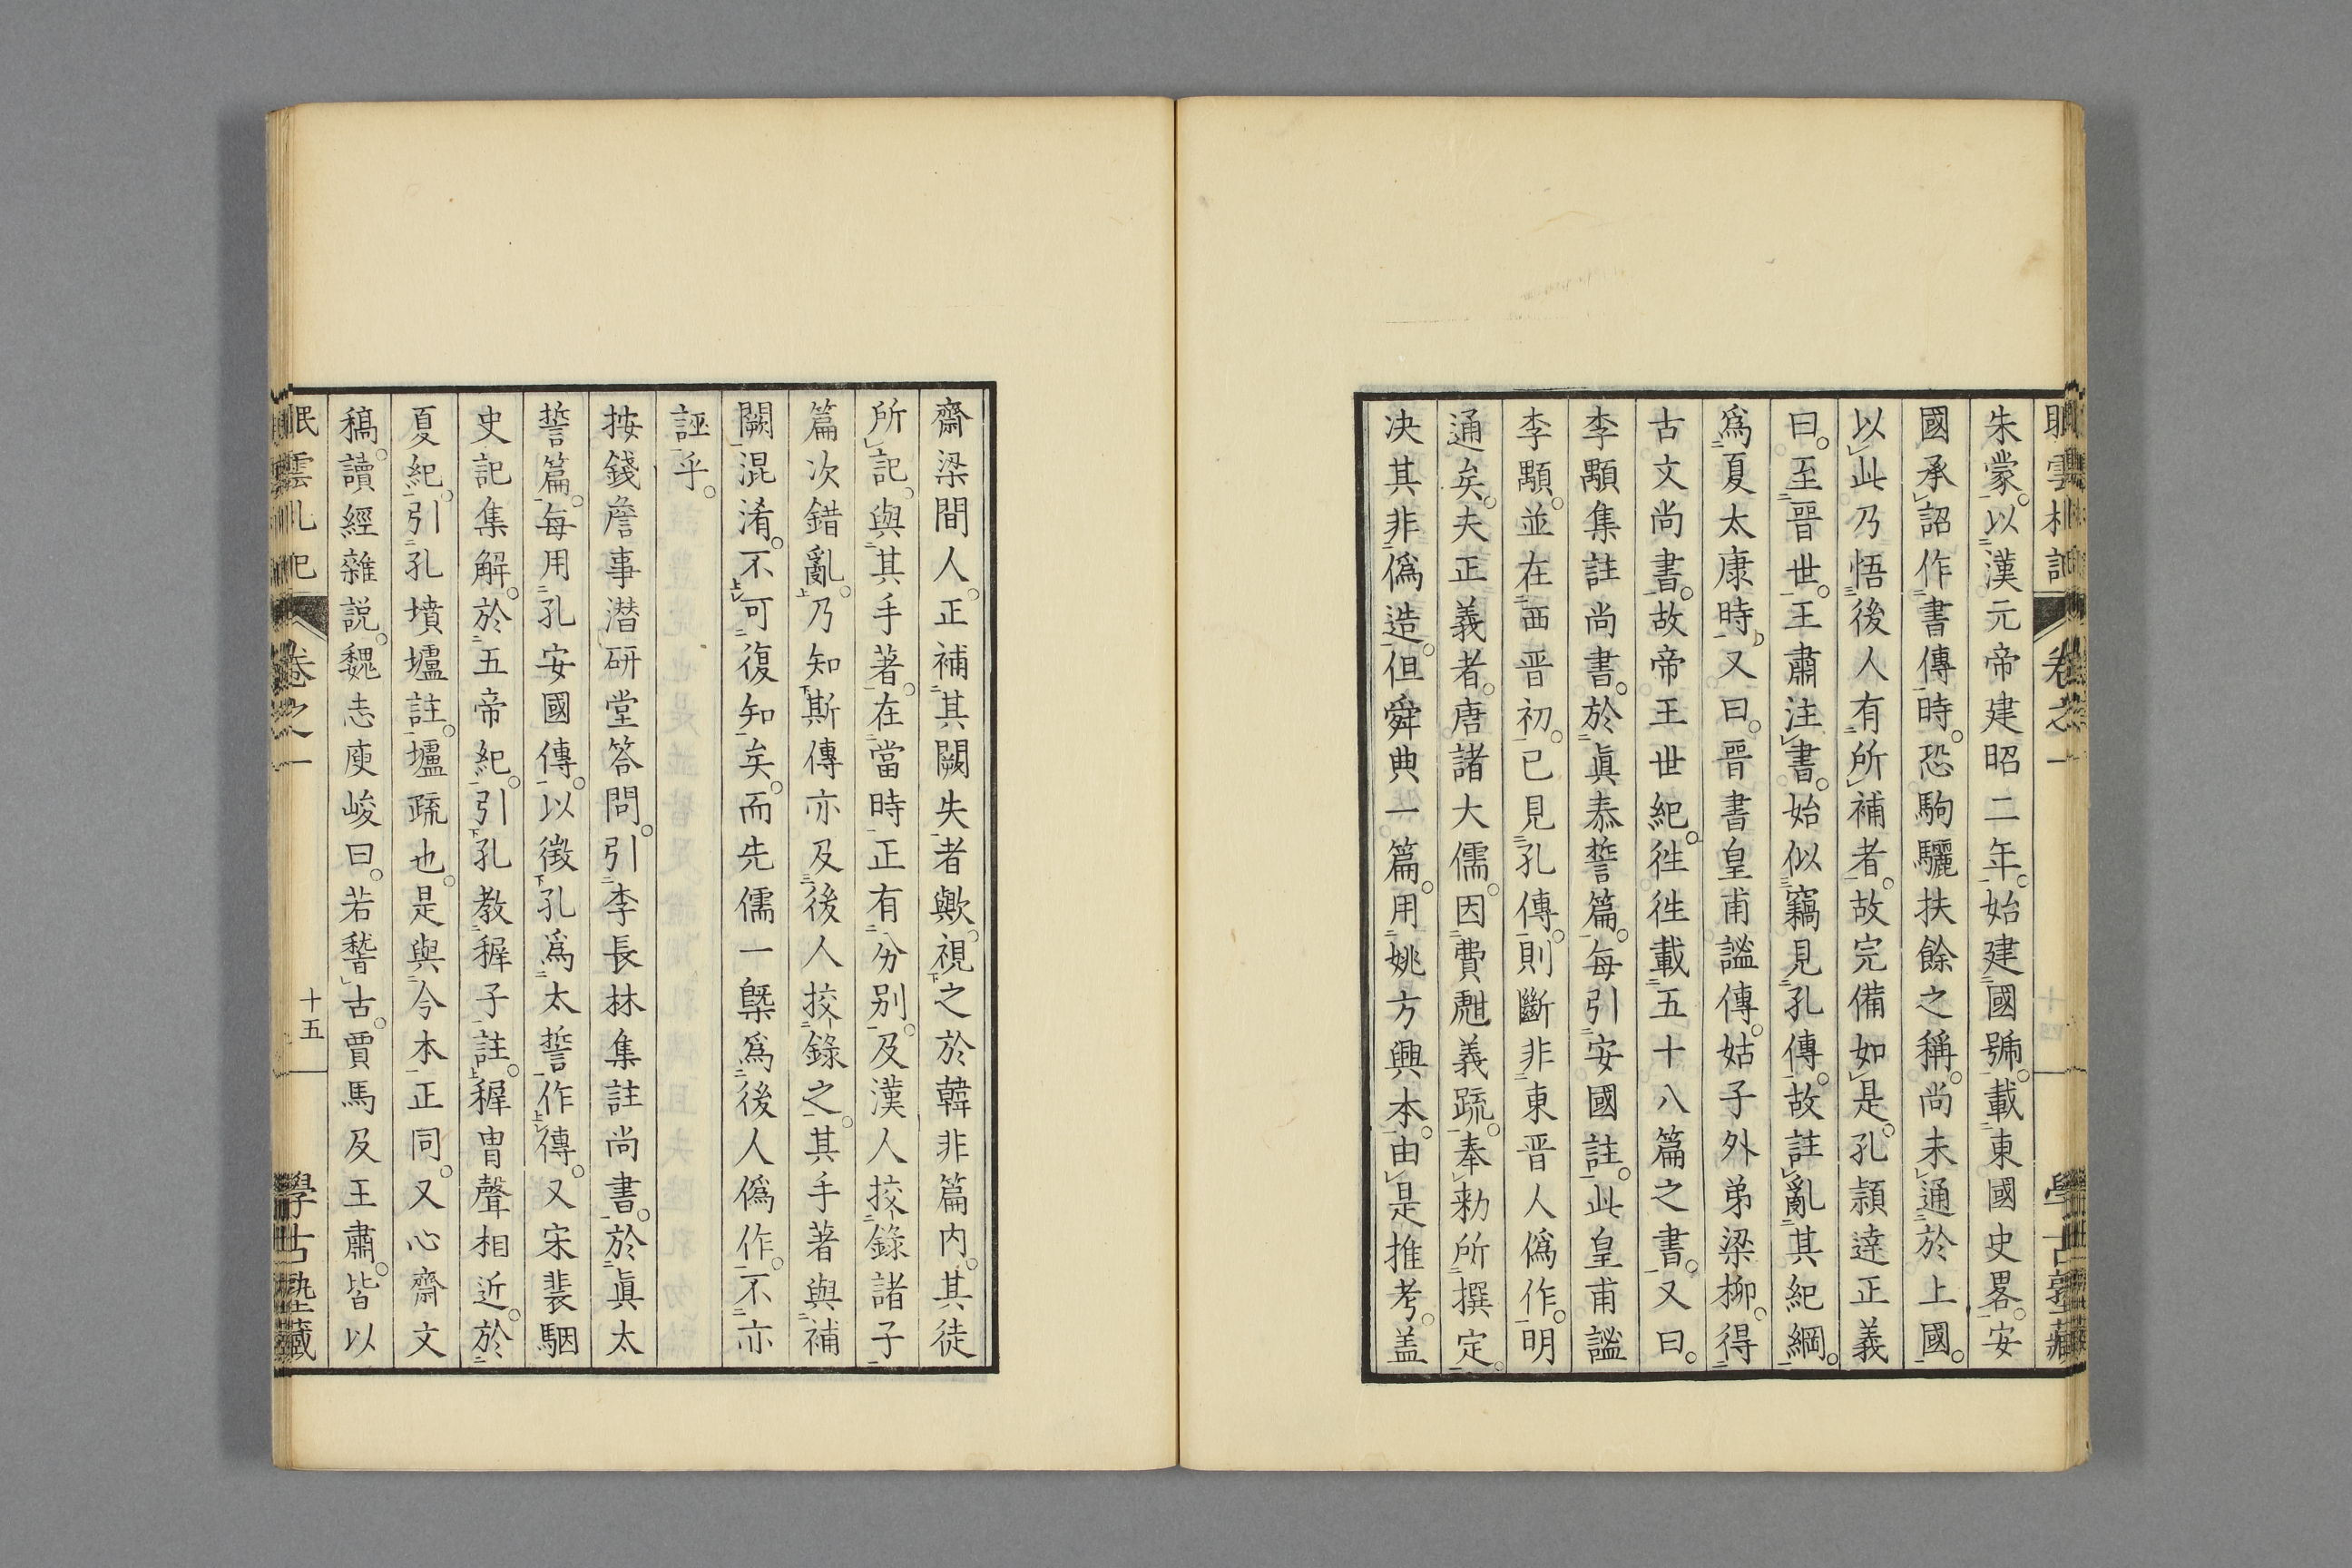 眠雲札記 卷之一 學古塾藏
朱蒙。以漢元帝建昭二年。始建國號。載東國史畧。安
國承詔作書傳時。恐駒驪扶餘之稱。尚未通於上國。
以此乃悟後人有所補者。故完備如是。孔頴達正義
曰。至晉世。王肅注書。始似竊見孔傳。故註亂其紀綱。
爲夏太康時。又曰。晉書皇甫謐傳。姑子外弟梁柳。得
古文尚書。故帝王世紀。徃徃載五十八篇之書。又曰。
李顒集註尚書。於眞泰誓篇。每引安國註。此皇甫謐
李顒。並在西晋初。已見孔傳。則斷非東晋人僞作。明
通矣。夫正義者。唐諸大儒。因費甝義疏。奉勑所撰定。
决其非僞造。但舜典一篇。用姚方興本。由是推考。盖
齋梁間人。正補其闕失者歟。視之於韓非篇内。其徒
所記。與其手著。在當時。正有分别。及漢人挍録諸子
篇次錯亂。乃知斯傳亦及後人挍録之。其手著與補
闕混淆。不可復知矣。而先儒一槩爲後人僞作。不亦
誣乎。
按錢詹事潛研堂答問。引李長林集註尚書。於眞太
誓篇。每用孔安國傳。以徴孔爲太誓作傳。又宋裴駰
史記集解。於五帝紀。引孔教穉子註。穉冑聲相近。於
夏紀。引孔墳壚註。壚疏也。是與今本正同。又心齋文
稿。讀經雜説。魏志庾峻曰。若稽古。賈馬及王肅。皆以
眠雲札記 卷之一 十五 學古塾藏